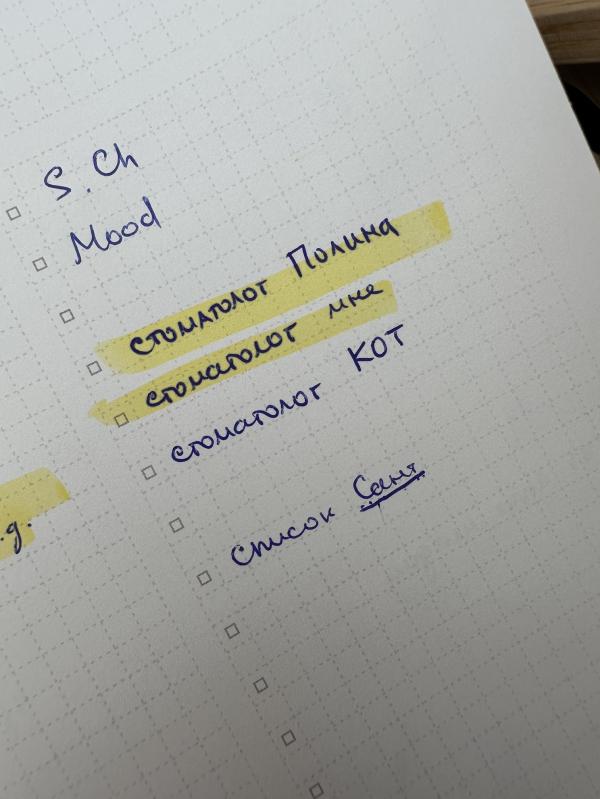 S. Ch
Mood
стоматолог Полина
стоматолог мне
стоматолог КОТ
.д.
список Сант